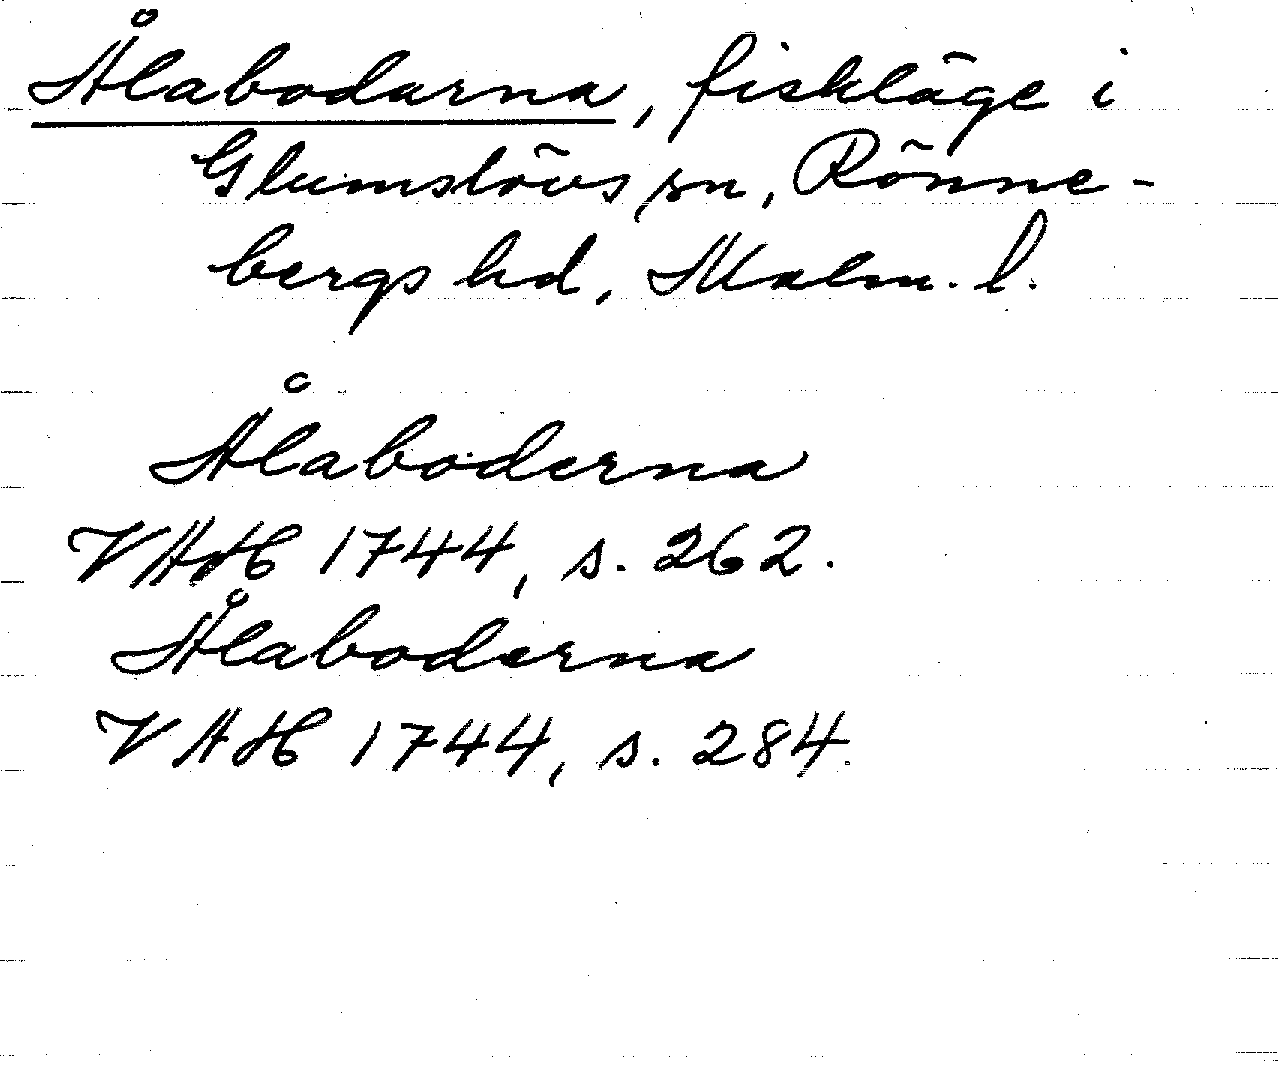 Ålabodarna, fiskläge i
Glumslövs sn, Rönne-
bergs hd, Malm. l.
Ålaboderna
VAH 1744, s. 262.
Ålaboderna
VAH 1744, s. 284.